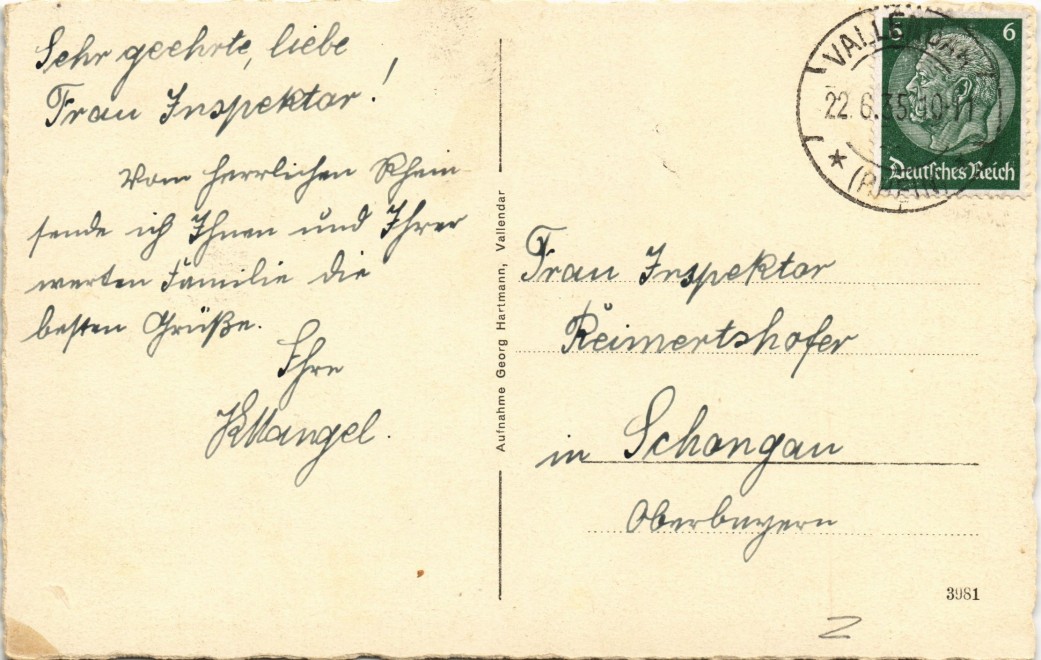 Sehr geehrte, liebe
Frau Inspektor!
Vom herrlichen Rhein
sende ich Ihnen und Ihrer
werten Familie die
besten Grüße.
Ihre
KMangel.
Aufnahme Georg Hartmann, Vallendar
VALLENDAR
22.6.35.10-11
(RHEIN)
6 6
Deutsches Reich
Frau Inspektor
Reimertshofer
in Schongau
Oberbayern
3981